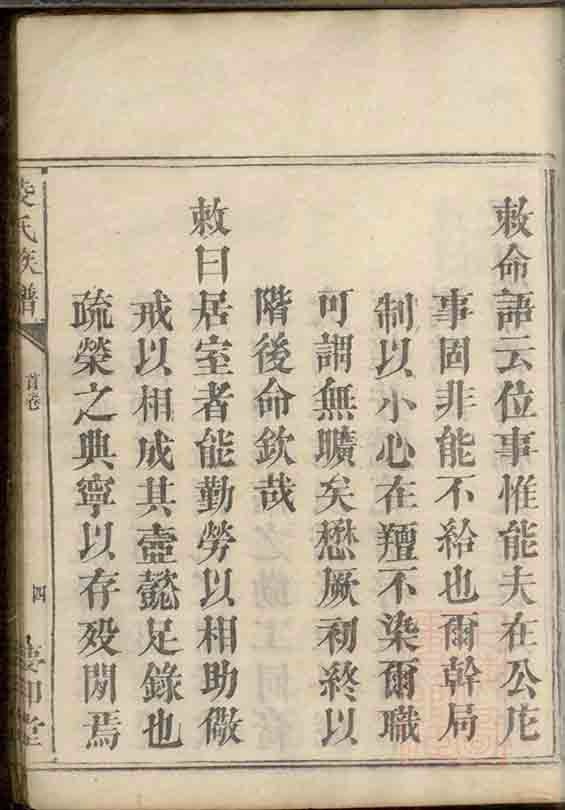 敕命語云位事惟能夫在公庀
事固非能不給也爾幹局
制以小心在羶不染爾職
可謂無曠矣懋厥初終以
階後命欽哉
敕曰居室者能勤勞以相助儆
戒以相成其壼懿足錄也
疏榮之典寧以存殁閒焉
氏族譜
首卷
四
堂